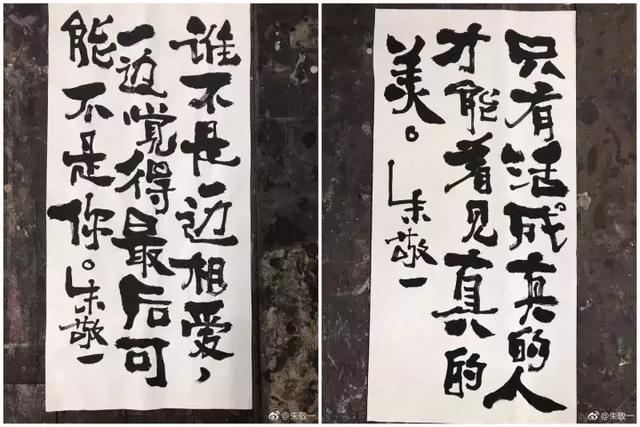 谁不是一边相爱，
一边觉得最后可
能不是你。朱敬一
@朱敬一
只有活成真的人
才能看见真的
美。朱敬一
@朱敬一